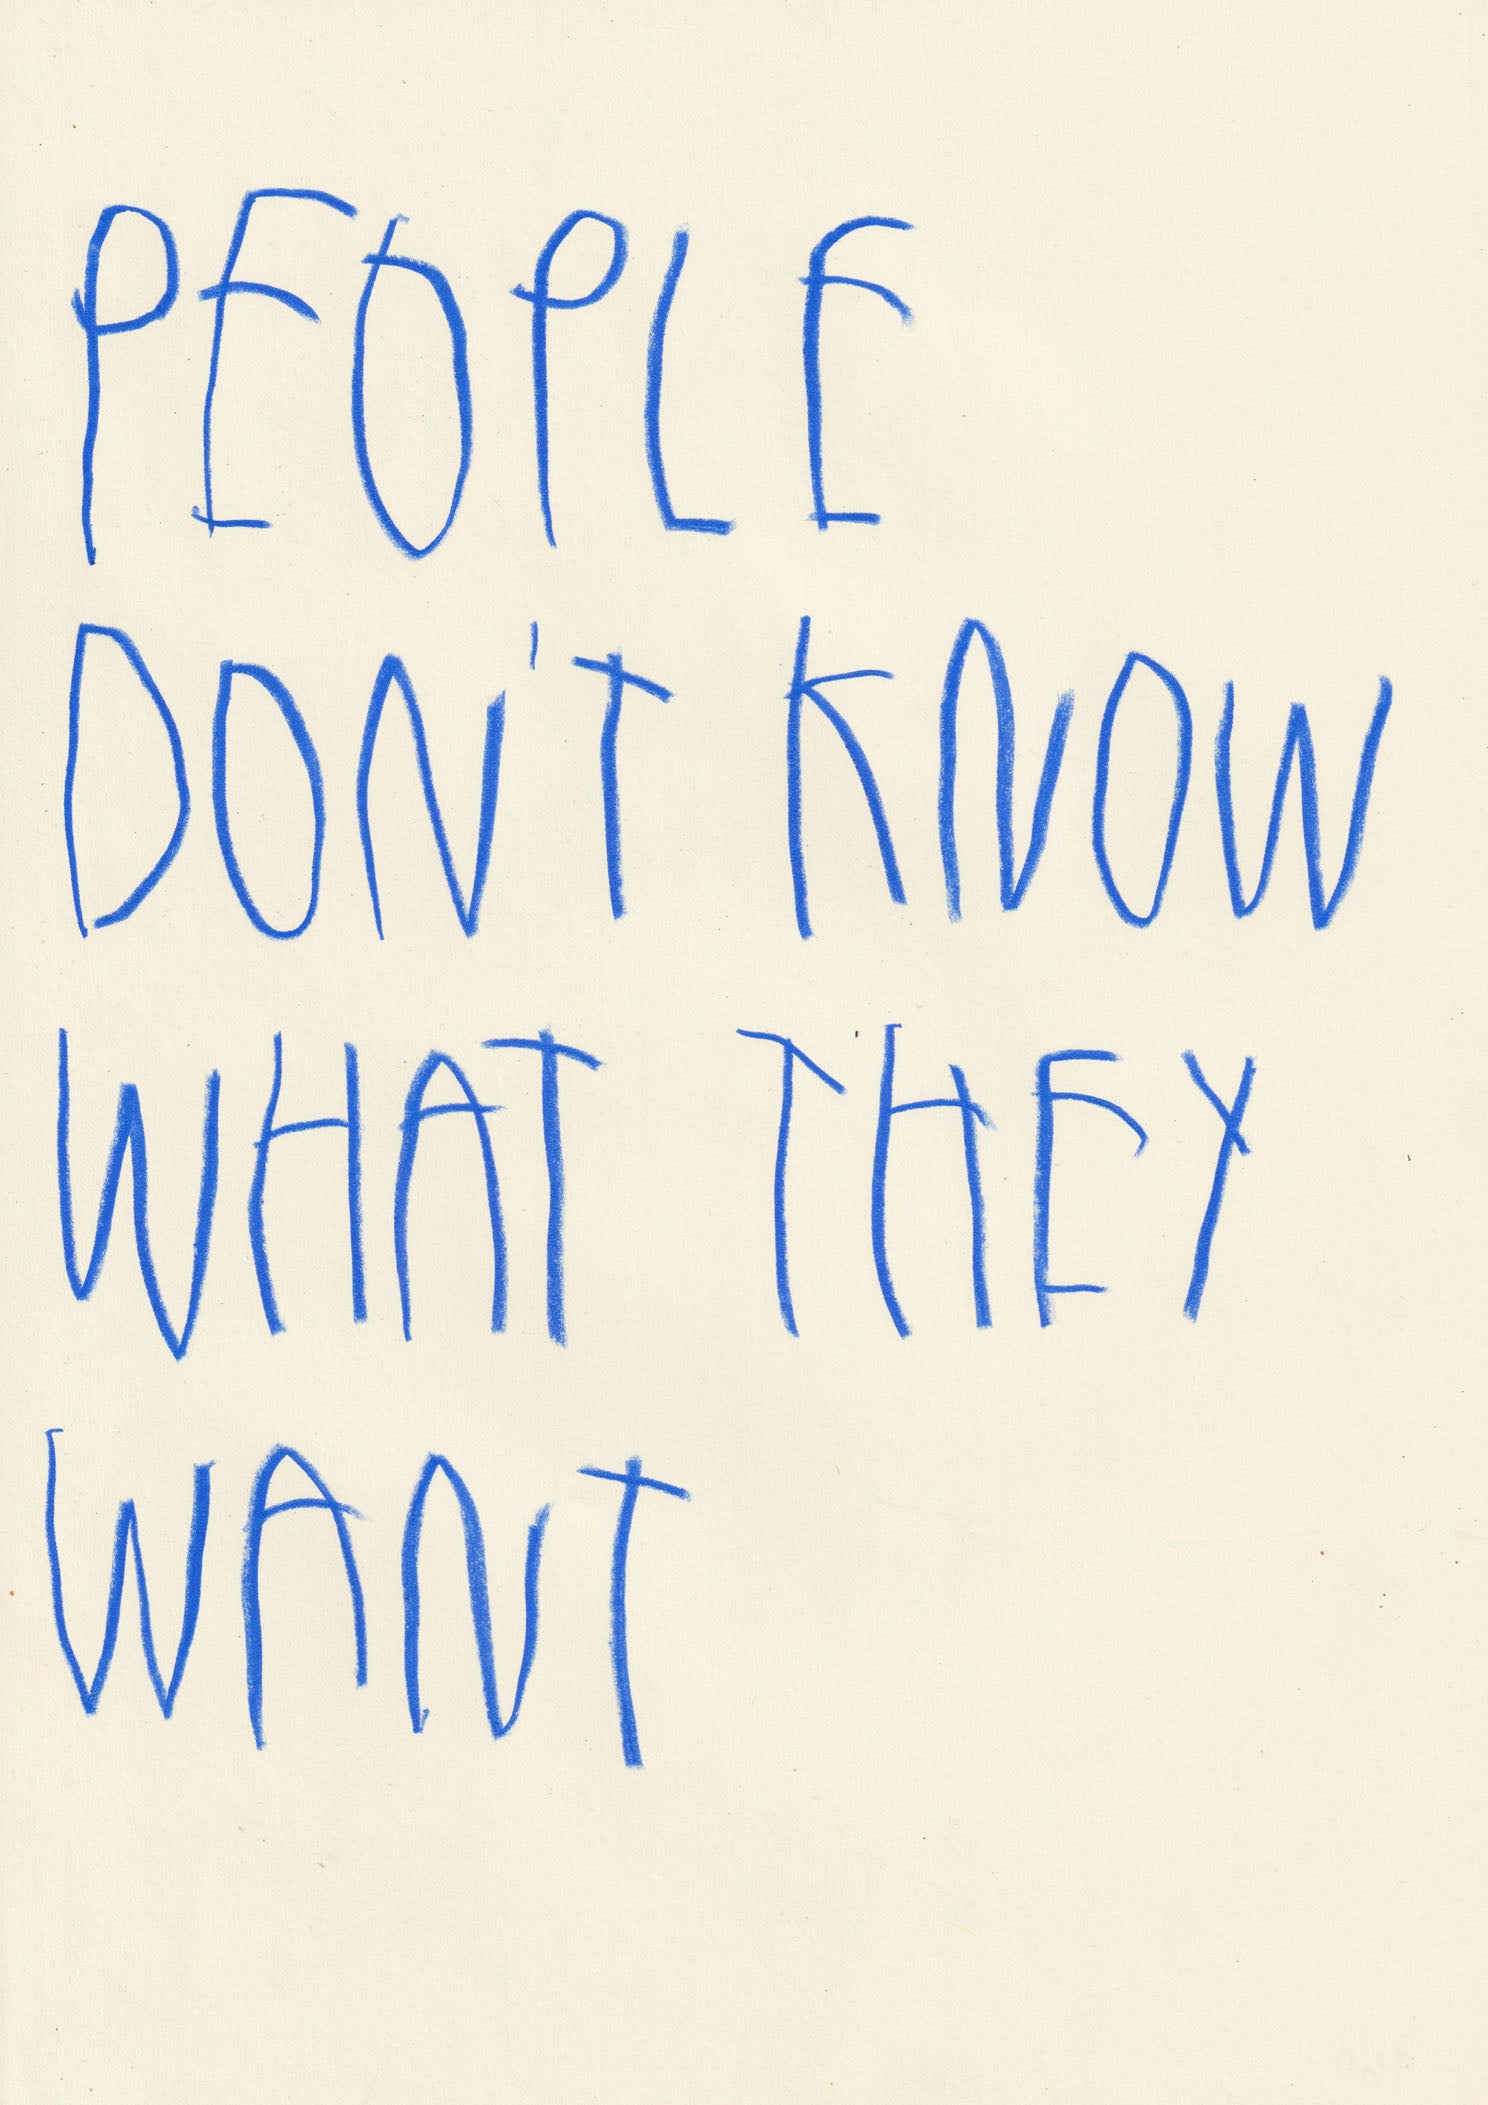 PEOPLE
DON'T KNOW
WHAT THEY
WANT